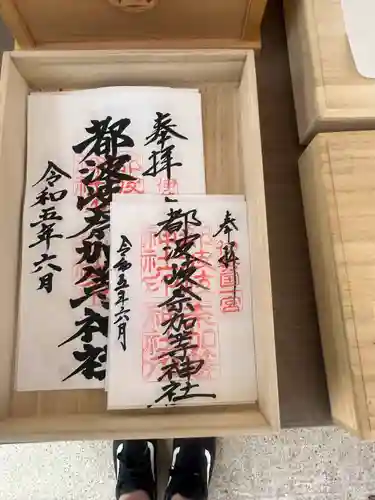 奉拝
都波岐奈加等神社
令和五年六月
奉拝
伊勢国一宮
都波岐奈加等神社
令和五年六月